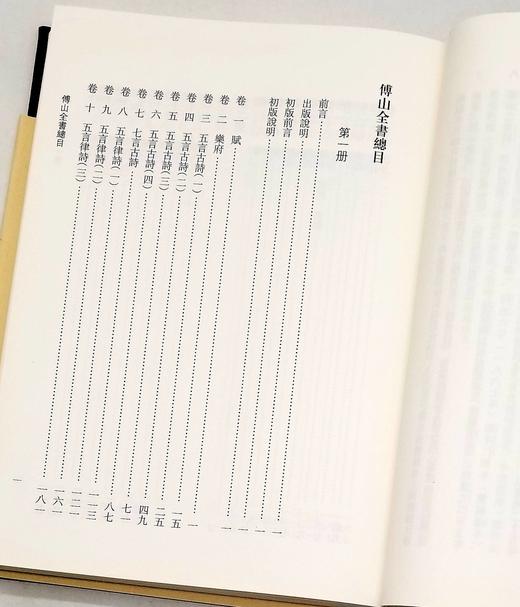 傅山全書總目
第一册
前言……一
出版說明……一
初版前言……一
初版說明……一
卷一 賦……一
卷二 樂府……一五
卷三 五言古詩(一)……二五
卷四 五言古詩(二)……四九
卷五 五言古詩(三)……七一
卷六 五言古詩(四)……八七
卷七 七言古詩……一一三
卷八 五言律詩(一)……一二一
卷九 五言律詩(二)……一六一
卷十 五言律詩(三)……一八一
傅山全書總目
一